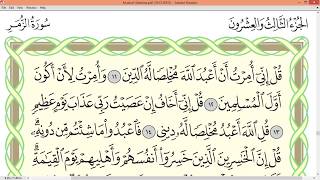 الجزء الثالث والعشرون
سورة الزمر
قُلْ إِنِّىٓ أُمِرْتُ أَنْ أَعْبُدَ ٱللَّهَ مُخْلِصًا لَّهُ ٱلدِّينَ ١١ وَأُمِرْتُ لِأَنْ أَكُونَ
أَوَّلَ ٱلْمُسْلِمِينَ ١٢ قُلْ إِنِّىٓ أَخَافُ إِنْ عَصَيْتُ رَبِّى عَذَابَ يَوْمٍ عَظِيمٍ
١٣ قُلِ ٱللَّهَ أَعْبُدُ مُخْلِصًا لَّهُۥ دِينِى ١٤ فَٱعْبُدُوا۟ مَا شِئْتُم مِّن دُونِهِۦ
قُلْ إِنَّ ٱلْخَٰسِرِينَ ٱلَّذِينَ خَسِرُوٓا۟ أَنفُسَهُمْ وَأَهْلِيهِمْ يَوْمَ ٱلْقِيَٰمَةِ